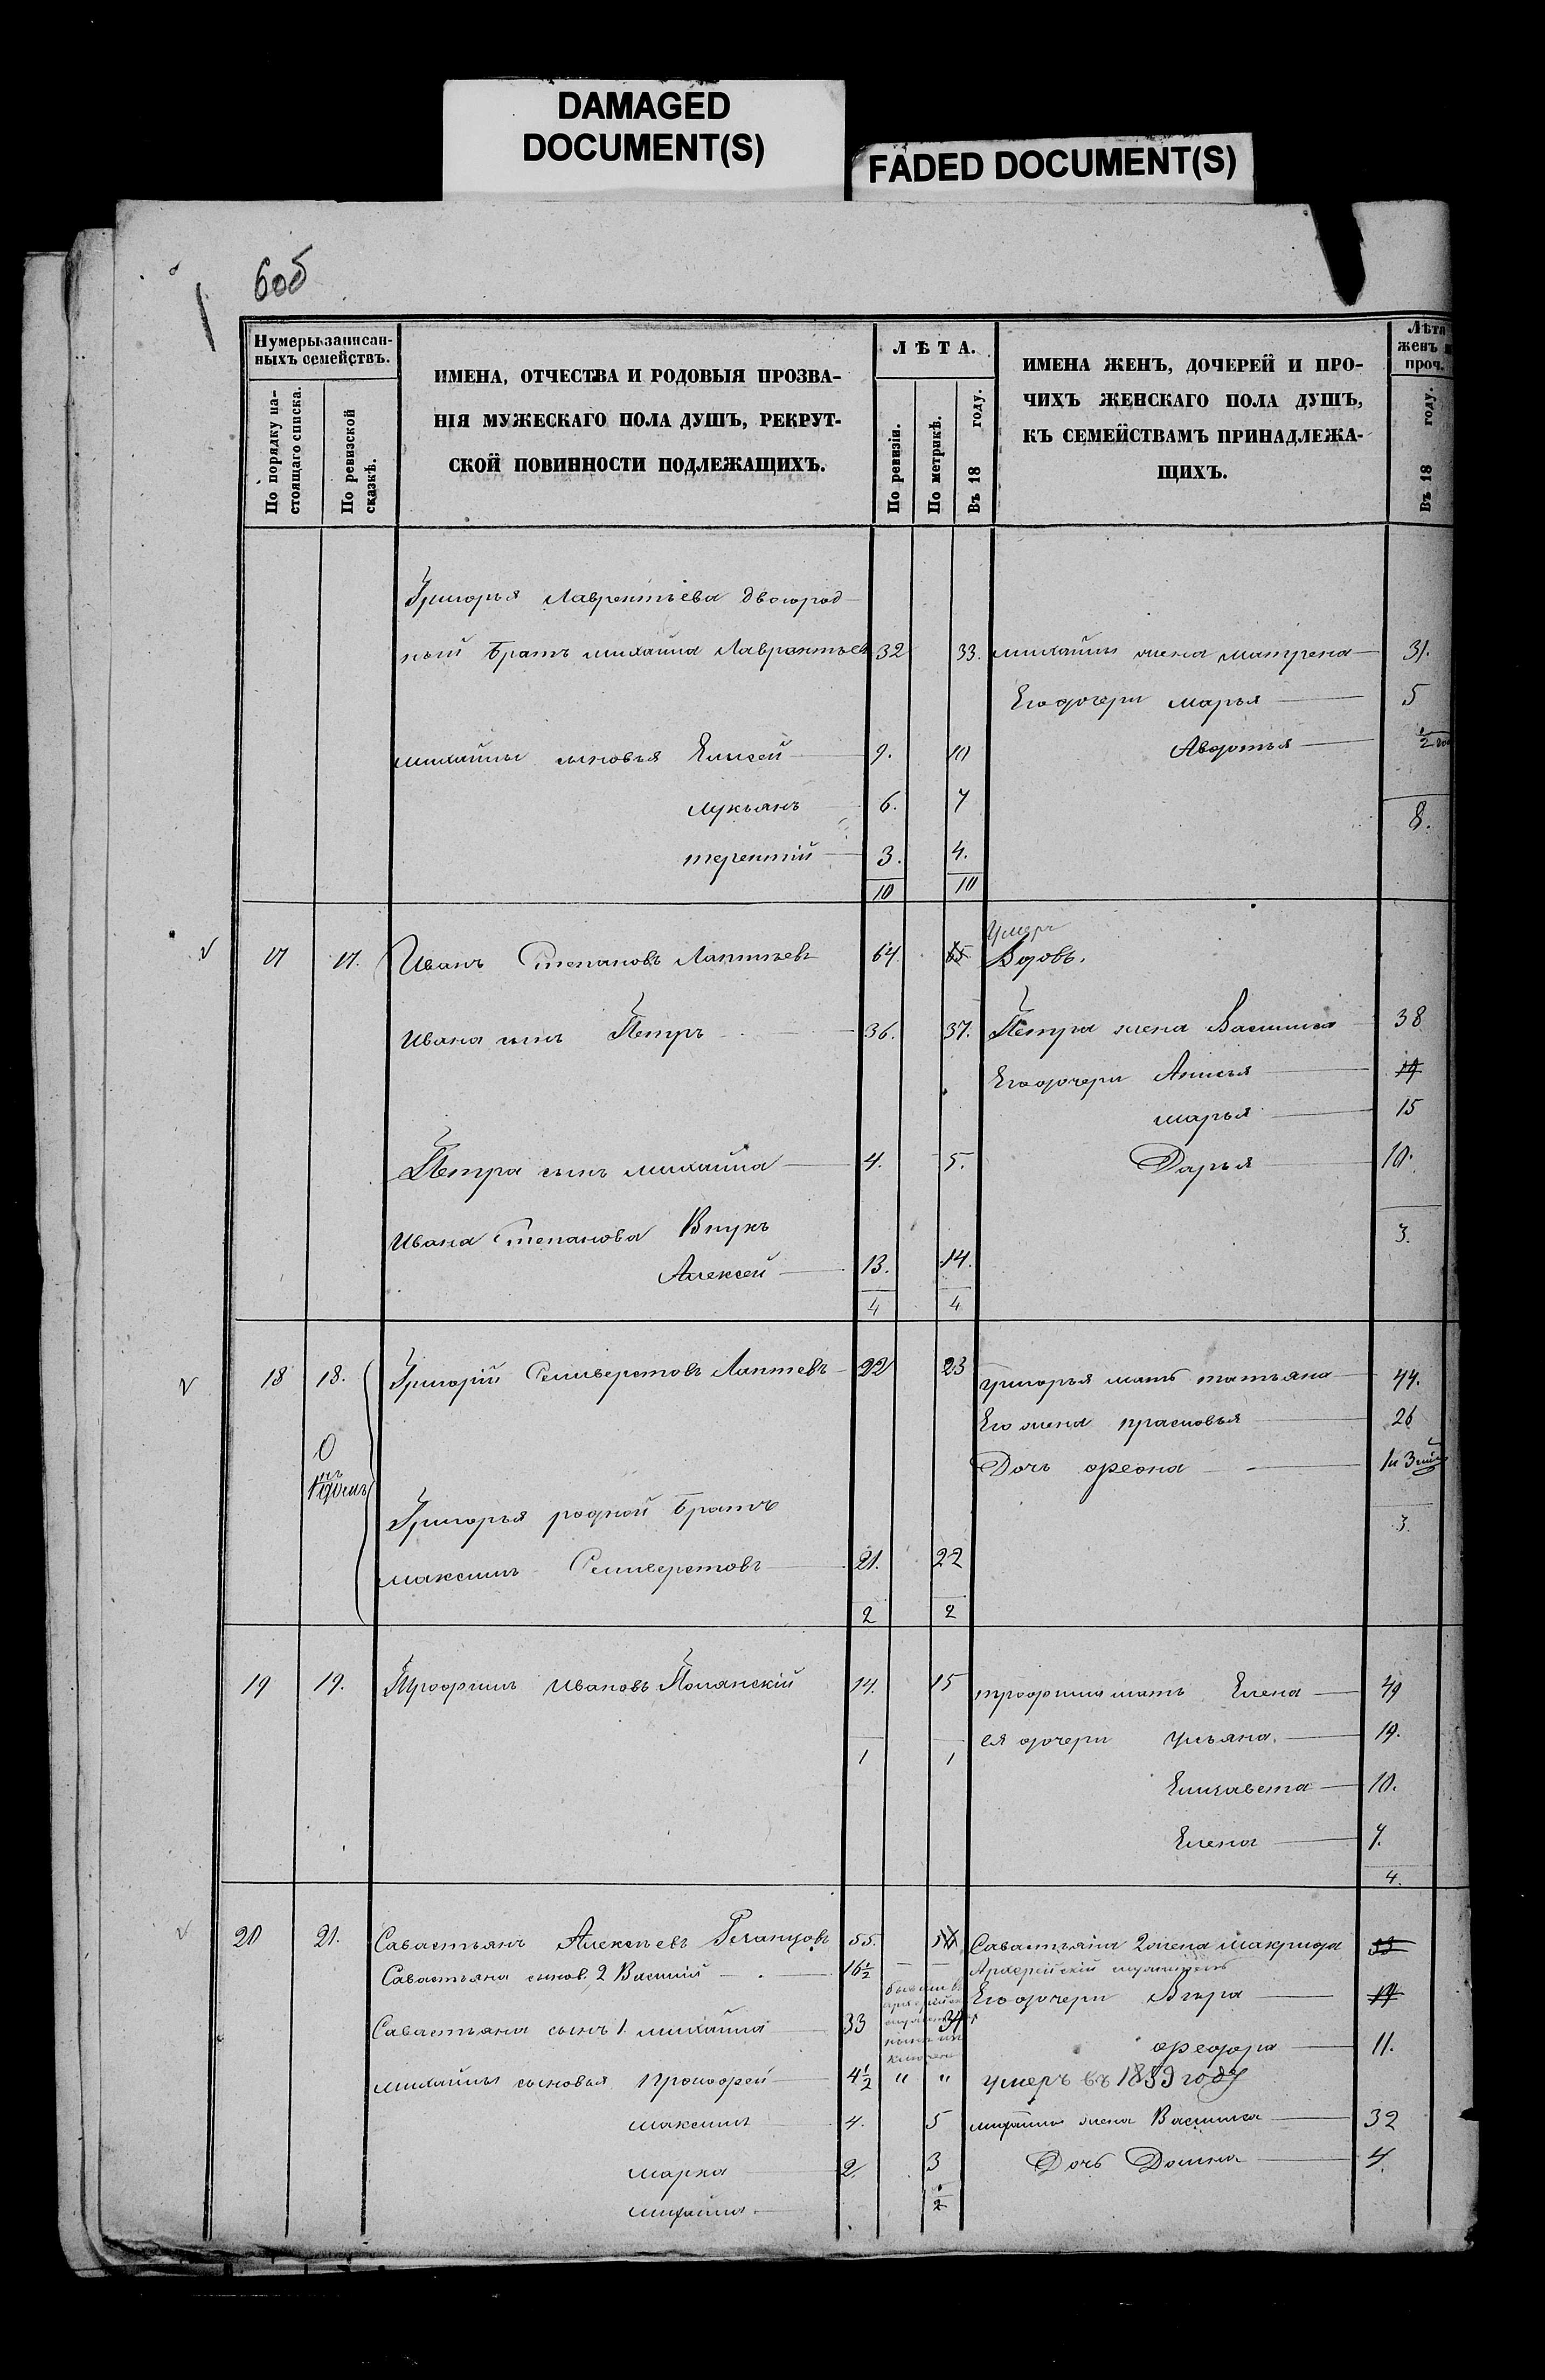 DAMAGED
DOCUMENT(S)
FADED DOCUMENT(S)
6об
Нумеры записан-
ныхъ семействъ.
По порядку на-
стоящаго списка.
По ревизской
сказкѣ.
ИМЕНА, ОТЧЕСТВА И РОДОВЫЯ ПРОЗВА-
НІЯ МУЖЕСКАГО ПОЛА ДУШЪ, РЕКРУТ-
СКОЙ ПОВИННОСТИ ПОДЛЕЖАЩИХЪ.
ЛѢТА.
По ревизіи.
По метрикѣ.
Въ 18 году.
ИМЕНА ЖЕНЪ, ДОЧЕРЕЙ И ПРО-
ЧИХЪ ЖЕНСКАГО ПОЛА ДУШЪ,
КЪ СЕМЕЙСТВАМЪ ПРИНАДЛЕЖА-
ЩИХЪ.
Лѣта
женъ и
проч.
Въ 18 году.
Григорья Лаврентьева двоюрод-
ный братъ михайла Лаврентьев 32 33. михайлы жена матрена 31.
Его дочери марья 5
михайлы сыновья Елисей 9. 10 Авдотья 1/2
лукьянъ 6. 7
8.
терентій 3. 4.
10 10
Умеръ
17 17. Иванъ Степановъ Лаптевъ 64. 65 Вдовъ.
Ивана сынъ Петръ 36. 37. Петра жена Василиса 38
Его дочери Анисья 19
марья 15
Петра сынъ михайла 4. 5. Дарья 10.
Ивана Степанова Внукъ 3.
Алексей 13. 14.
4 4
18 18. Григорій Селиверстовъ Лаптевъ 22 23 григорья мать татьяна 44.
Его жена прасковья 26
0
Дочь
Григорья родной Братъ 3.
максимъ Селиверстовъ 21. 22
2 2
19 19. Трофимъ Ивановъ Полянскій 14. 15 трофима мать Елена 49
ея дочери ульяна 19.
1 1
Елизавета 10.
Елена 7.
4.
20 21. Савастьянъ Алексѣевъ 55. Савастьяна 2 жена макрида 53
Савастьяна сынов. 2 Василий 16 1/2 Архерейскій
Его дочери Вѣра 19
Савастьяна сынъ 1. михайла 33 34
федора 11.
михайлы сыновья Прокофей 4 1/2 " " умеръ въ 1859 году
максимъ 4. 5 михайлы жена Василиса 32
марка 2. 3 Дочь Домна 4.
михайла 1/2